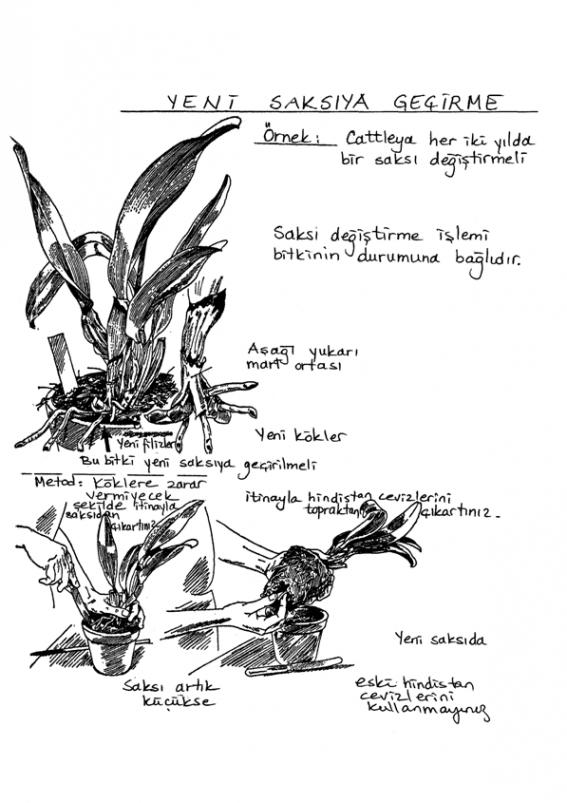 YENİ SAKSIYA GEÇİRME
Örnek: Cattleya her iki yılda
bir saksı değiştirmeli
Saksi değiştirme işlemi
bitkinin durumuna bağlıdır.
Aşağı yukarı
mart ortası
Yeni filizler
Yeni kökler
Bu bitki yeni saksıya geçirilmeli
Metod: köklere zarar
vermiyecek
şekilde itinayla
saksıdan
çıkartınız
itinayla hindistan cevizlerini
topraktan çıkartınız.
Yeni saksıda
Saksı artık
küçükse
eski hindistan
cevizlerini
kullanmayınız